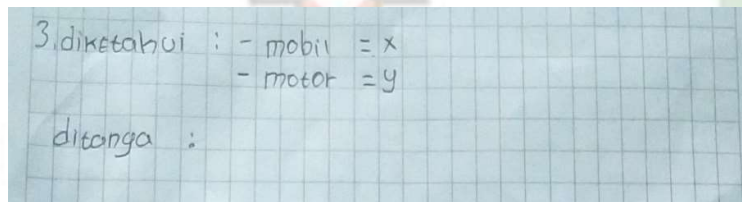 3. diketahui : - mobil = x
- motor = y
ditanya :